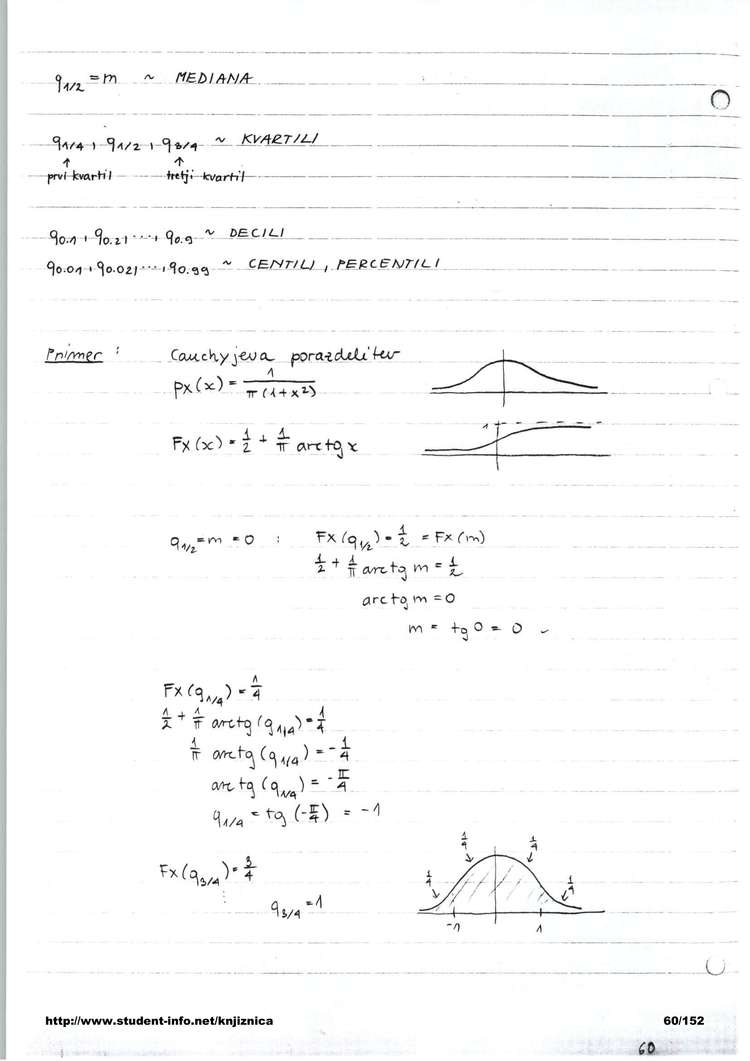 q_{1/2} = m ~ MEDIANA
q_{1/4}, q_{1/2}, q_{3/4} ~ KVARTILI
↑ ↑
prvi kvartil tretji kvartil
q_{0.1}, q_{0.2}, ..., q_{0.9} ~ DECILI
q_{0.01}, q_{0.02}, ..., q_{0.99} ~ CENTILI, PERCENTILI
Primer: Cauchyjeva porazdelitev
p_X(x) = 1/(π(1+x²))
F_X(x) = 1/2 + 1/π arctg x
1
q_{1/2} = m = 0 : F_X(q_{1/2}) = 1/2 = F_X(m)
1/2 + 1/π arctg m = 1/2
arctg m = 0
m = tg 0 = 0
F_X(q_{1/4}) = 1/4
1/2 + 1/π arctg(q_{1/4}) = 1/4
1/π arctg(q_{1/4}) = -1/4
arctg(q_{1/4}) = -π/4
q_{1/4} = tg(-π/4) = -1
F_X(q_{3/4}) = 3/4
⋮
q_{3/4} = 1
1/4 1/4 1/4 1/4
-1 1
http://www.student-info.net/knjiznica 60/152
60